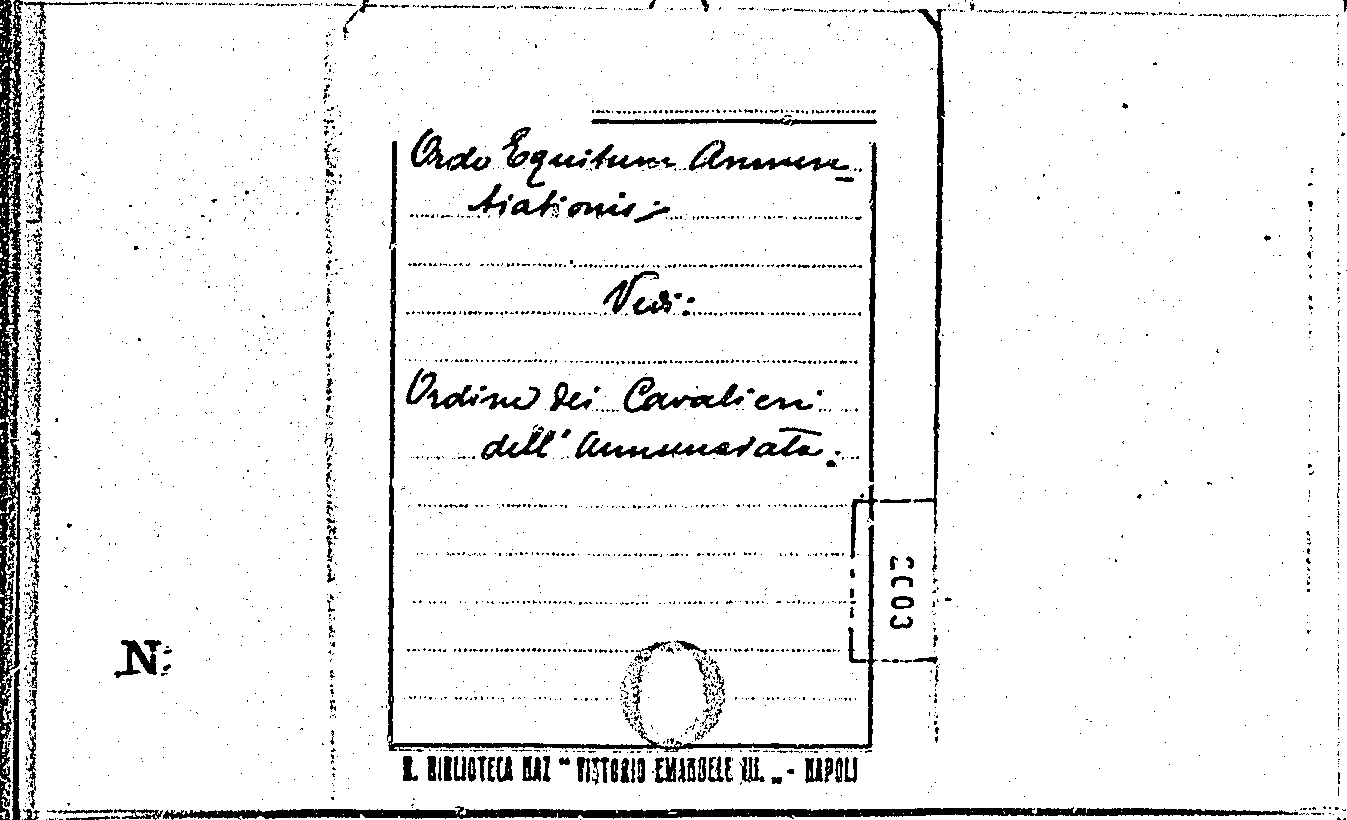 Ordo Equitum Annun-
tiationis
Vedi:
Ordine dei Cavalieri
dell'Annunziata.
2003
N:
R. BIBLIOTECA NAZ "VITTORIO EMANUELE III." - NAPOLI